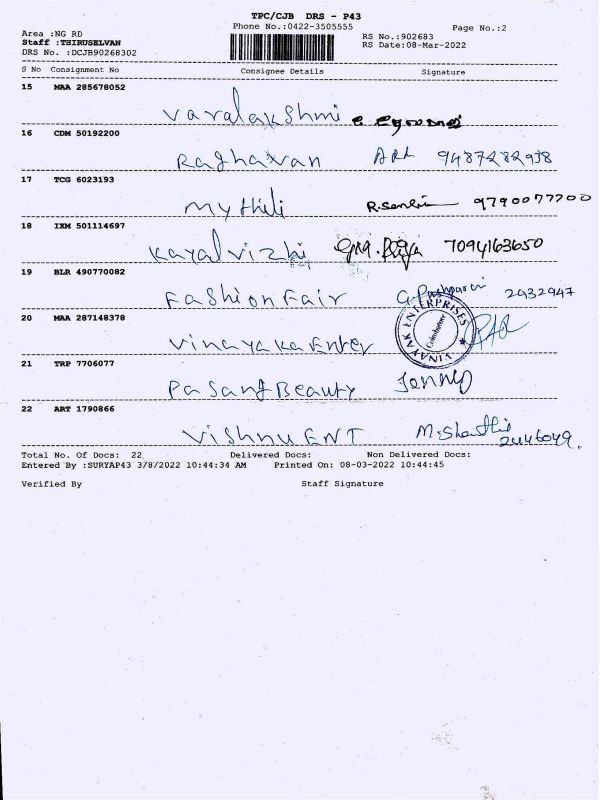 TPC/CJB DRS - P43
Phone No.:0422-3505555
Page No.:2
Area :NG RD
RS No.:902683
Staff :THIRUSELVAN
RS Date:08-Mar-2022
DRS No. :DCJB90268302
S No Consignment No Consignee Details Signature
15 MAA 285678052
Varalakshmi
16 CDM 50192200
Raghavan 9487282938
17 TCG 6023193
Mythili 9790077200
18 IXM 501114697
Kayalvizhi 7094163650
19 BLR 490770082
Fashion Fair 2432947
20 MAA 287148378
Vinayaka Enter
VINAYAK ENTERPRISES
Coimbatore
21 TRP 7706077
Pasang Beauty Jenny
22 ART 1790866
Vishnu ENT M.Shanthi
2446049.
Total No. Of Docs: 22 Delivered Docs: Non Delivered Docs:
Entered By :SURYAP43 3/8/2022 10:44:34 AM Printed On: 08-03-2022 10:44:45
Verified By Staff Signature